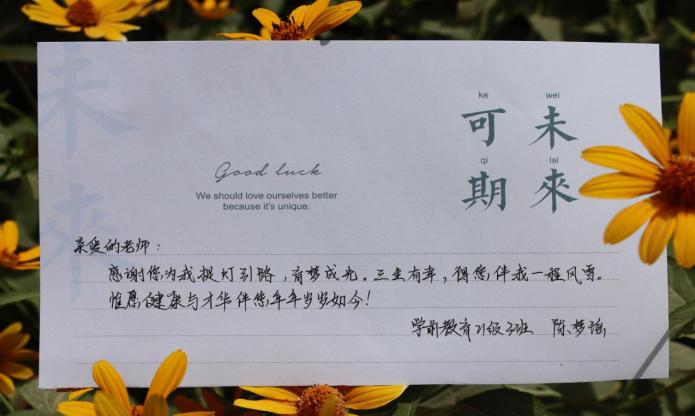 未來
ke wei
可 未
qi lai
期 來
Good luck
We should love ourselves better
because it's unique.
亲爱的老师：
感谢您为我提灯引路，育梦成光。三生有幸，得您伴我一程风雪。
惟愿健康与才华伴您年年岁岁如今！
学前教育21级3班 陈梦瑶